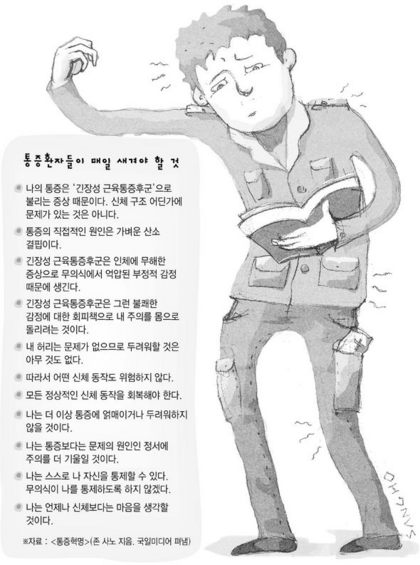 통증환자들이 매일 새겨야 할 것
나의 통증은 '긴장성 근육통증후군'으로
불리는 증상 때문이다. 신체 구조 어딘가에
문제가 있는 것은 아니다.
통증의 직접적인 원인은 가벼운 산소
결핍이다.
긴장성 근육통증후군은 인체에 무해한
증상으로 무의식에서 억압된 부정적 감정
때문에 생긴다.
긴장성 근육통증후군은 그런 불쾌한
감정에 대한 회피책으로 내 주의를 몸으로
돌리려는 것이다.
내 허리는 문제가 없으므로 두려워할 것은
아무 것도 없다.
따라서 어떤 신체 동작도 위험하지 않다.
모든 정상적인 신체 동작을 회복해야 한다.
나는 더 이상 통증에 얽매이거나 두려워하지
않을 것이다.
나는 통증보다는 문제의 원인인 정서에
주의를 더 기울일 것이다.
나는 스스로 나 자신을 통제할 수 있다.
무의식이 나를 통제하도록 하지 않겠다.
나는 언제나 신체보다는 마음을 생각할
것이다.
※자료 : <통증혁명>(존 사노 지음. 국일미디어 펴냄)
SANGHO